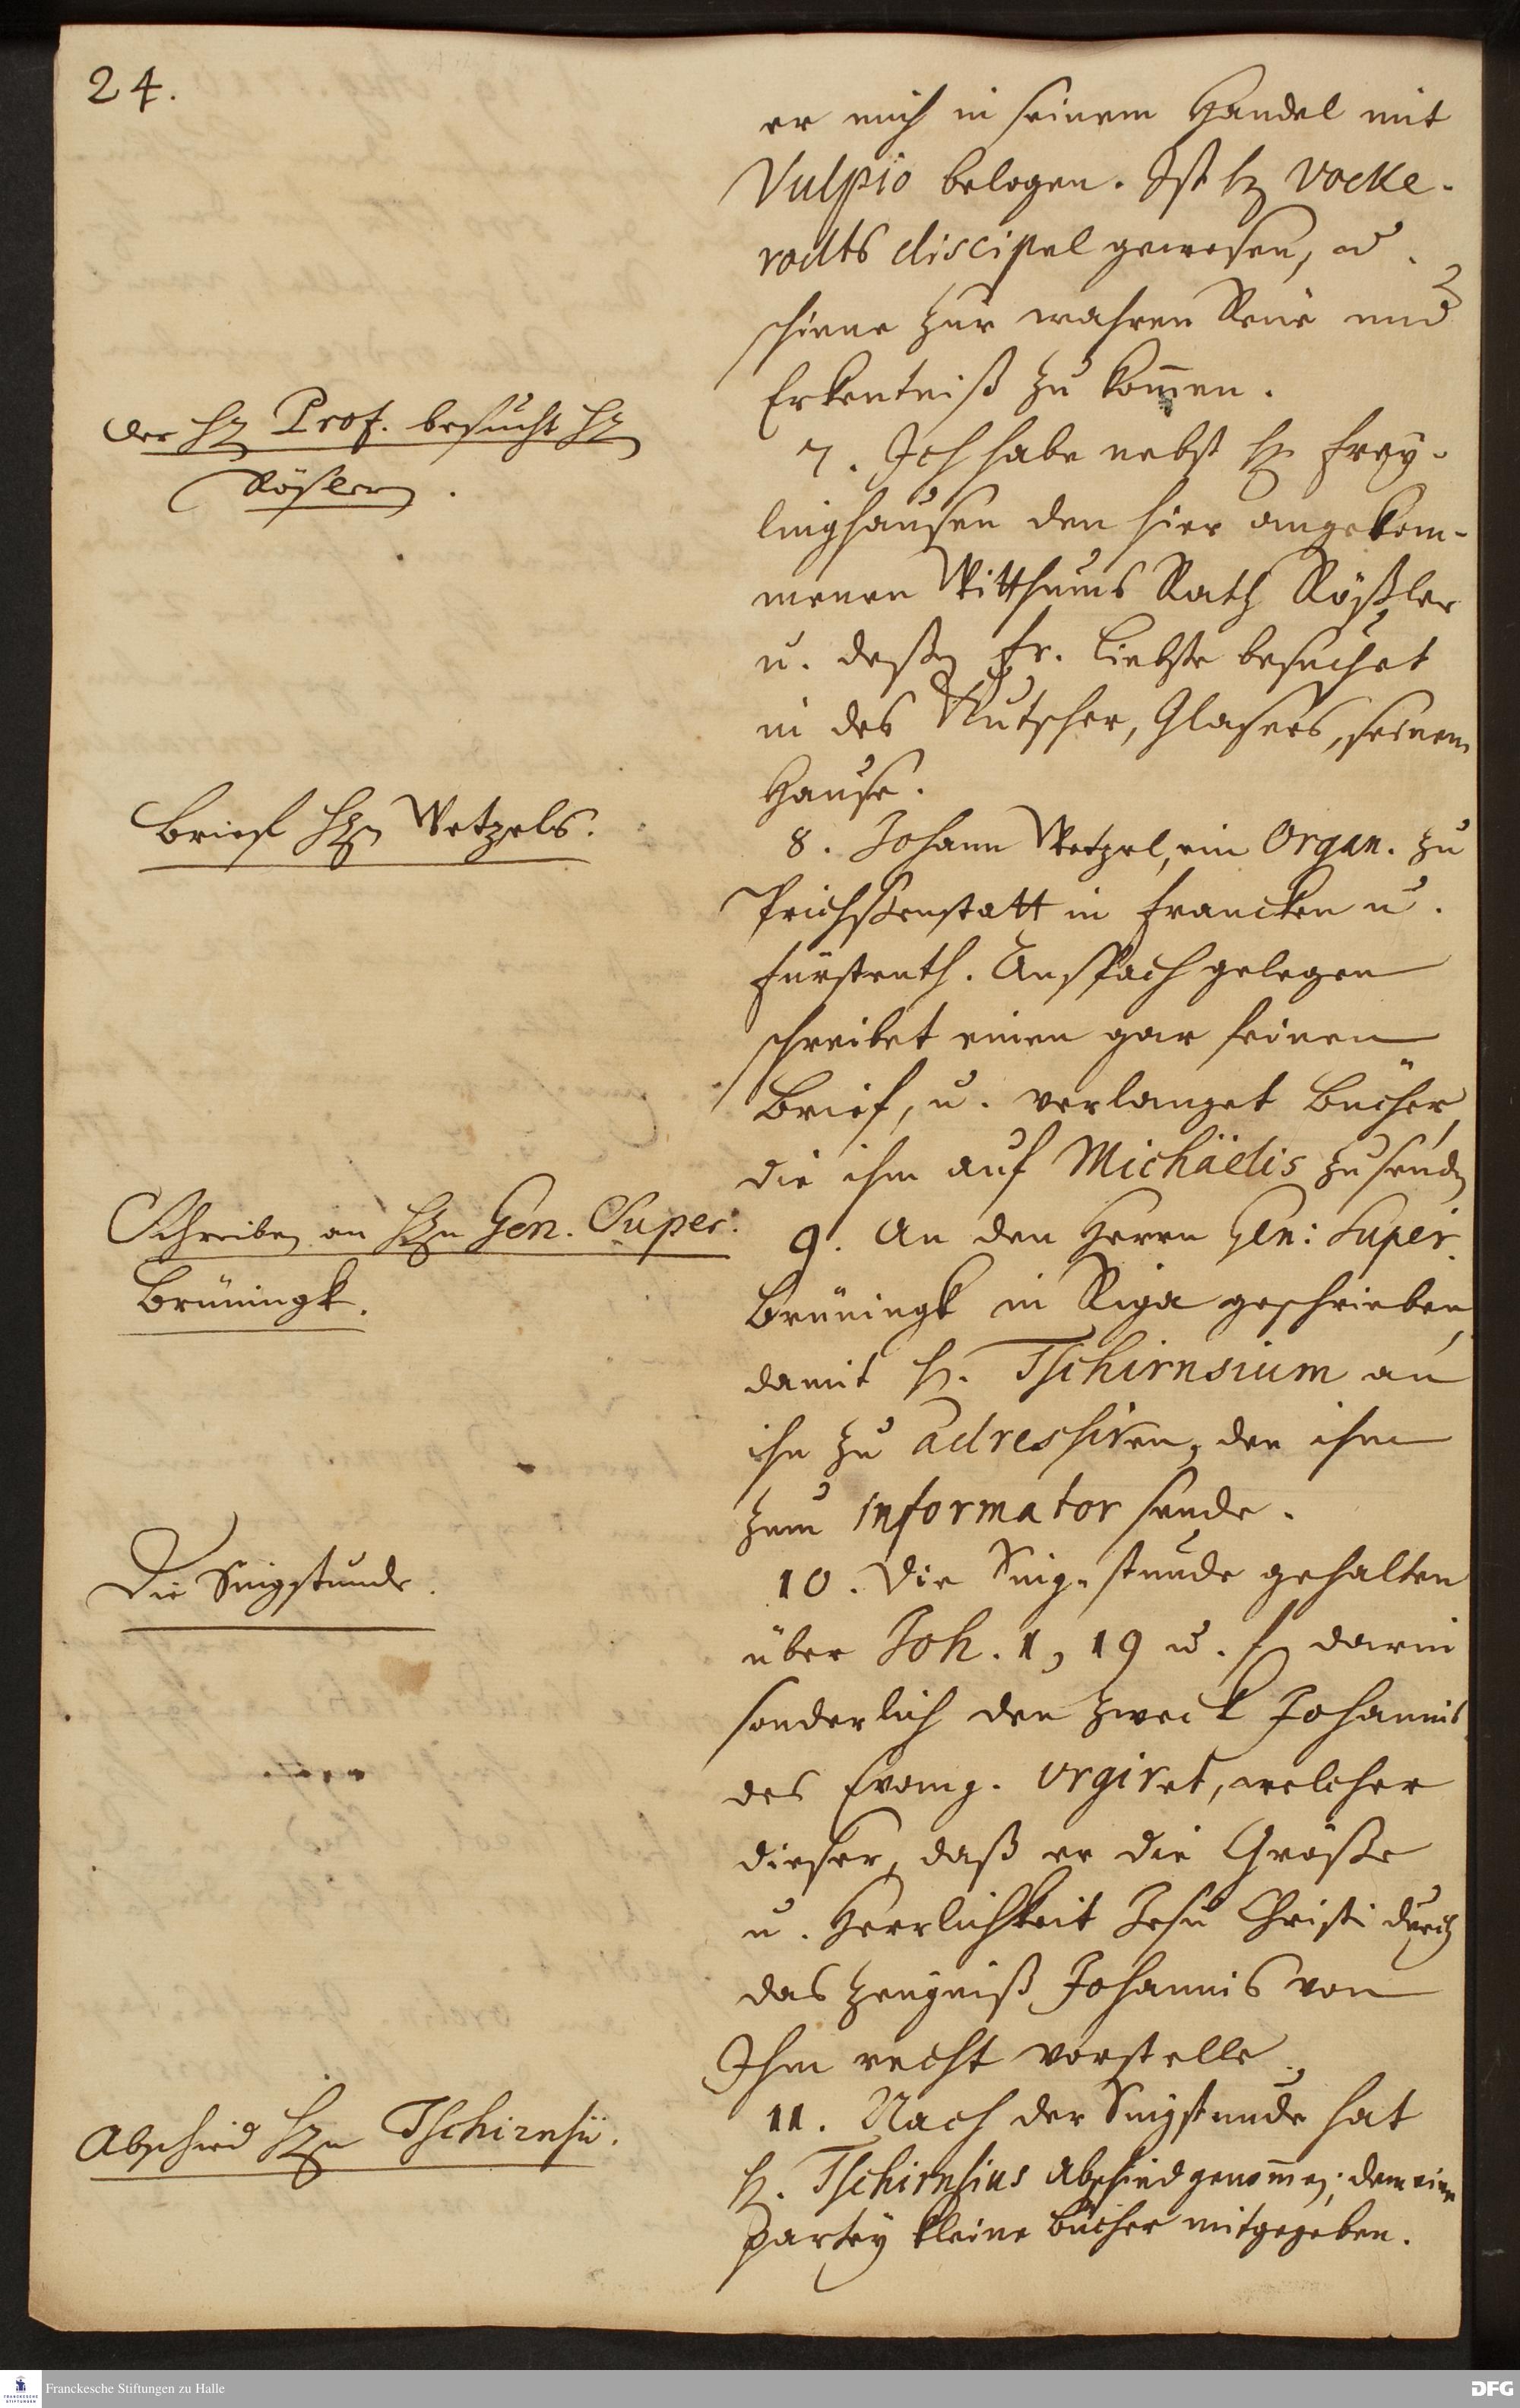 24.
er mich in seinem Handel mit
Vulpio belogen. Ist H. Vocke-
rodts discipel gewesen, u.
schiene zur wahren Reue und
Erkentniß zu kom̄en.
Der H. Prof. besucht H.
Röslern.
7. Ich habe nebst H. Frey-
linghausen den hier angekom-
menen Witthums Rath Rößler
u. deßen Fr. Liebste besuchet
in des Rutscher, Glasers, seinem
Hause.
Brief Hn. Wetzels.
8. Johann Wetzel, ein Organ. zu
Prichssenstatt in Francken u.
Fürstenth. Anspach gelegen
schreibet einen gar feinen
Brief, u. verlanget Bücher,
die ihm auf Michäelis zu senden
Schreiben an Hn Gen. Super.
Brüningk.
9. An den Herrn Gen: Super.
Brüningk in Riga geschrieben,
damit H. Tschirnsium an
ihn zu adressiren, den ihm
zum informator sende.
Die Singstunde.
10. Die Sing-stunde gehalten
über Joh. 1, 19 u. f. darin
sonderlich den Zweck Johannis
des Evang. urgiret, welcher
dieser, daß er die Größe
u. Herrlichkeit Jesu Christi durch
das Zeugniß Johannis von
Ihm recht vorstelle.
Abschied Hn Tschirnsii.
11. Nach der Singstunde hat
H. Tschirnsius Abschied genom̄en; dem eine
partey kleine Bücher mitgegeben.
Franckesche Stiftungen zu Halle
DFG